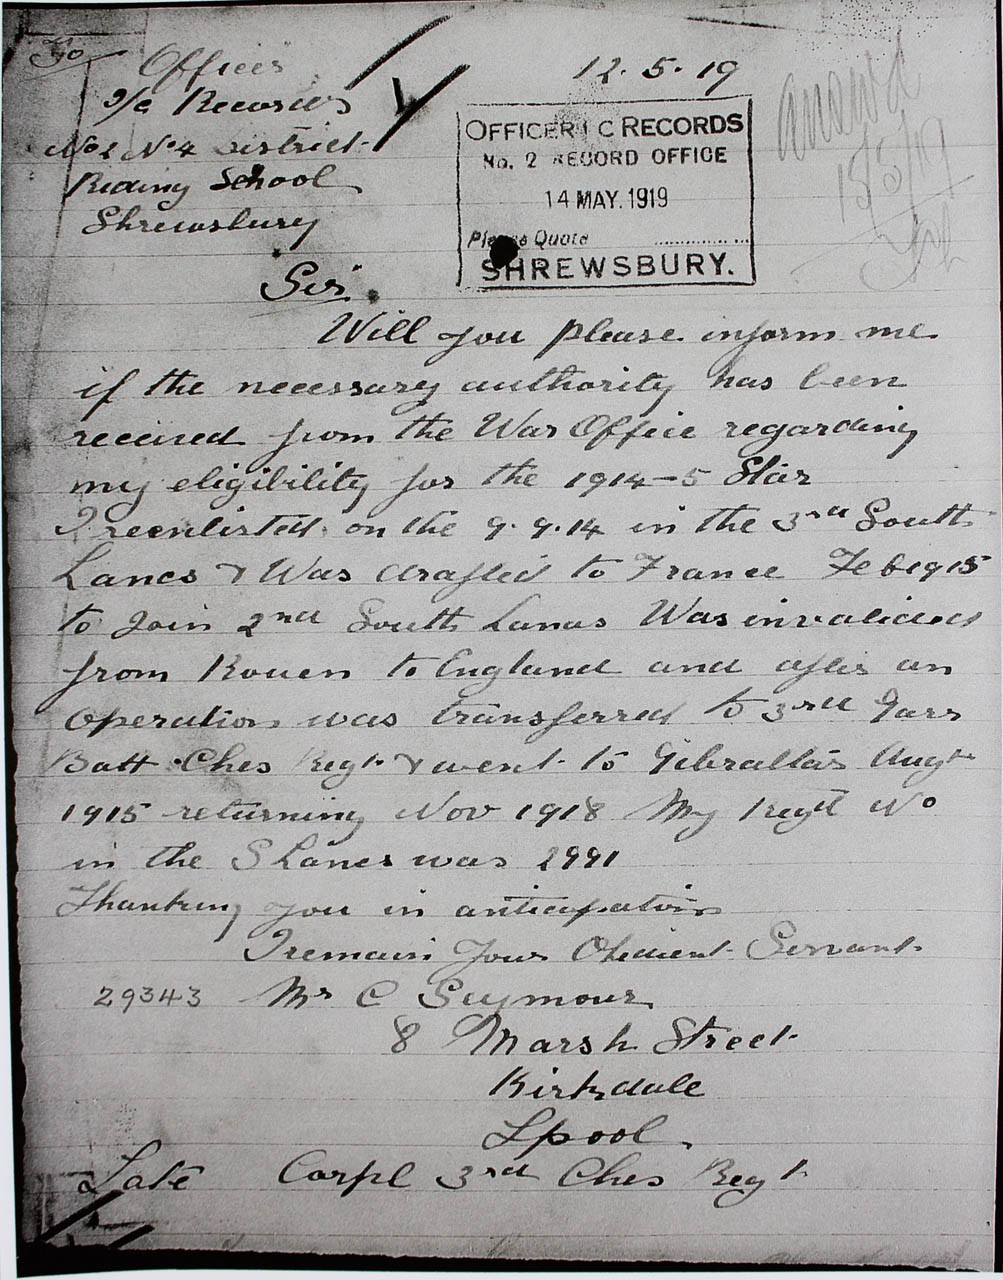 To
Officer
i/c Records
No 2 No 4 District
Riding School
Shrewsbury
12.5.19
OFFICER I/C RECORDS
No. 2 RECORD OFFICE
14 MAY. 1919
Please Quote ..................
SHREWSBURY.
15/5/19
Sir
Will you please inform me
if the necessary authority has been
received from the War Office regarding
my eligibility for the 1914-5 Star
I reenlisted on the 9.9.14 in the 3rd South
Lancs & Was drafted to France Feb 1915
to Join 2nd South Lancs Was invalided
from Rouen to England and after an
operation was transferred to 3rd Garr
Batt Ches Regt & went to Gibraltar Augt
1915 returning Nov 1918 My regtl No
in the S Lancs was 2991
Thanking you in anticipation
I remain Your Obedient Servant
29343 Mr C Seymour
8 Marsh Street
Kirkdale
Lpool.
Late Corpl 3rd Ches Regt